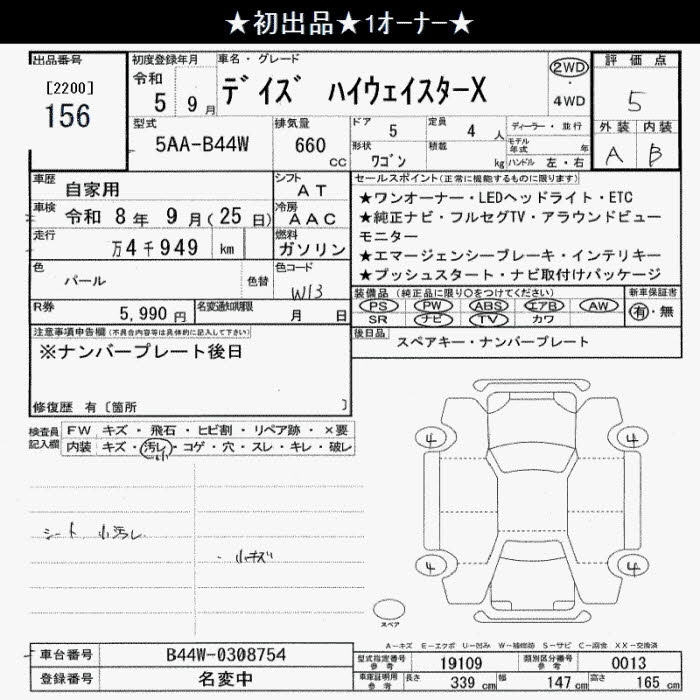 ★初出品★1オーナー★
出品番号
[2200]
156
初度登録年月
令和
5 9月
車名・グレード
デイズ ハイウェイスターX
2WD
・
4WD
評価点
5
外装 内装
A B
型式
5AA-B44W
排気量
660
CC
ドア
5
定員
4 人
ディーラー・並行
モデル年式 年
形状
ワゴン
積載
kg
ハンドル 左・右
車歴
自家用
シフト
AT
車検
令和 8年 9月(25日)
冷房
AAC
走行
万4千949 km
燃料
ガソリン
色
パール
色替
色コード
W13
R券
5,990円
名変通知期限
月 日
セールスポイント(正常に機能するものに限ります)
★ワンオーナー・LEDヘッドライト・ETC
★純正ナビ・フルセグTV・アラウンドビュー
モニター
★エマージェンシーブレーキ・インテリキー
★プッシュスタート・ナビ取付けパッケージ
装備品 (純正品に限り○をつけてください)
PS PW ABS エアB AW
SR ナビ TV カワ
新車保証書
有・無
後日品
スペアキー・ナンバープレート
注意事項申告欄(不具合内容等は具体的に記入して下さい)
※ナンバープレート後日
修復歴 有〔箇所 〕
検査員
記入欄
FW キズ・飛石・ヒビ割・リペア跡・×要
内装 キズ・汚レ・コゲ・穴・スレ・キレ・破レ
小
シート 小汚レ
・小キズ
4
4
4
4
スペア
A-キズ E-エクボ U-凹み W-補修跡 S-サビ C-腐食 XX-交換済
車台番号
B44W-0308754
登録番号
名変中
型式指定番号
参考
19109
類別区分番号
参考
0013
車庫証明用
参考
長さ
339 cm
幅
147 cm
高さ
165 cm